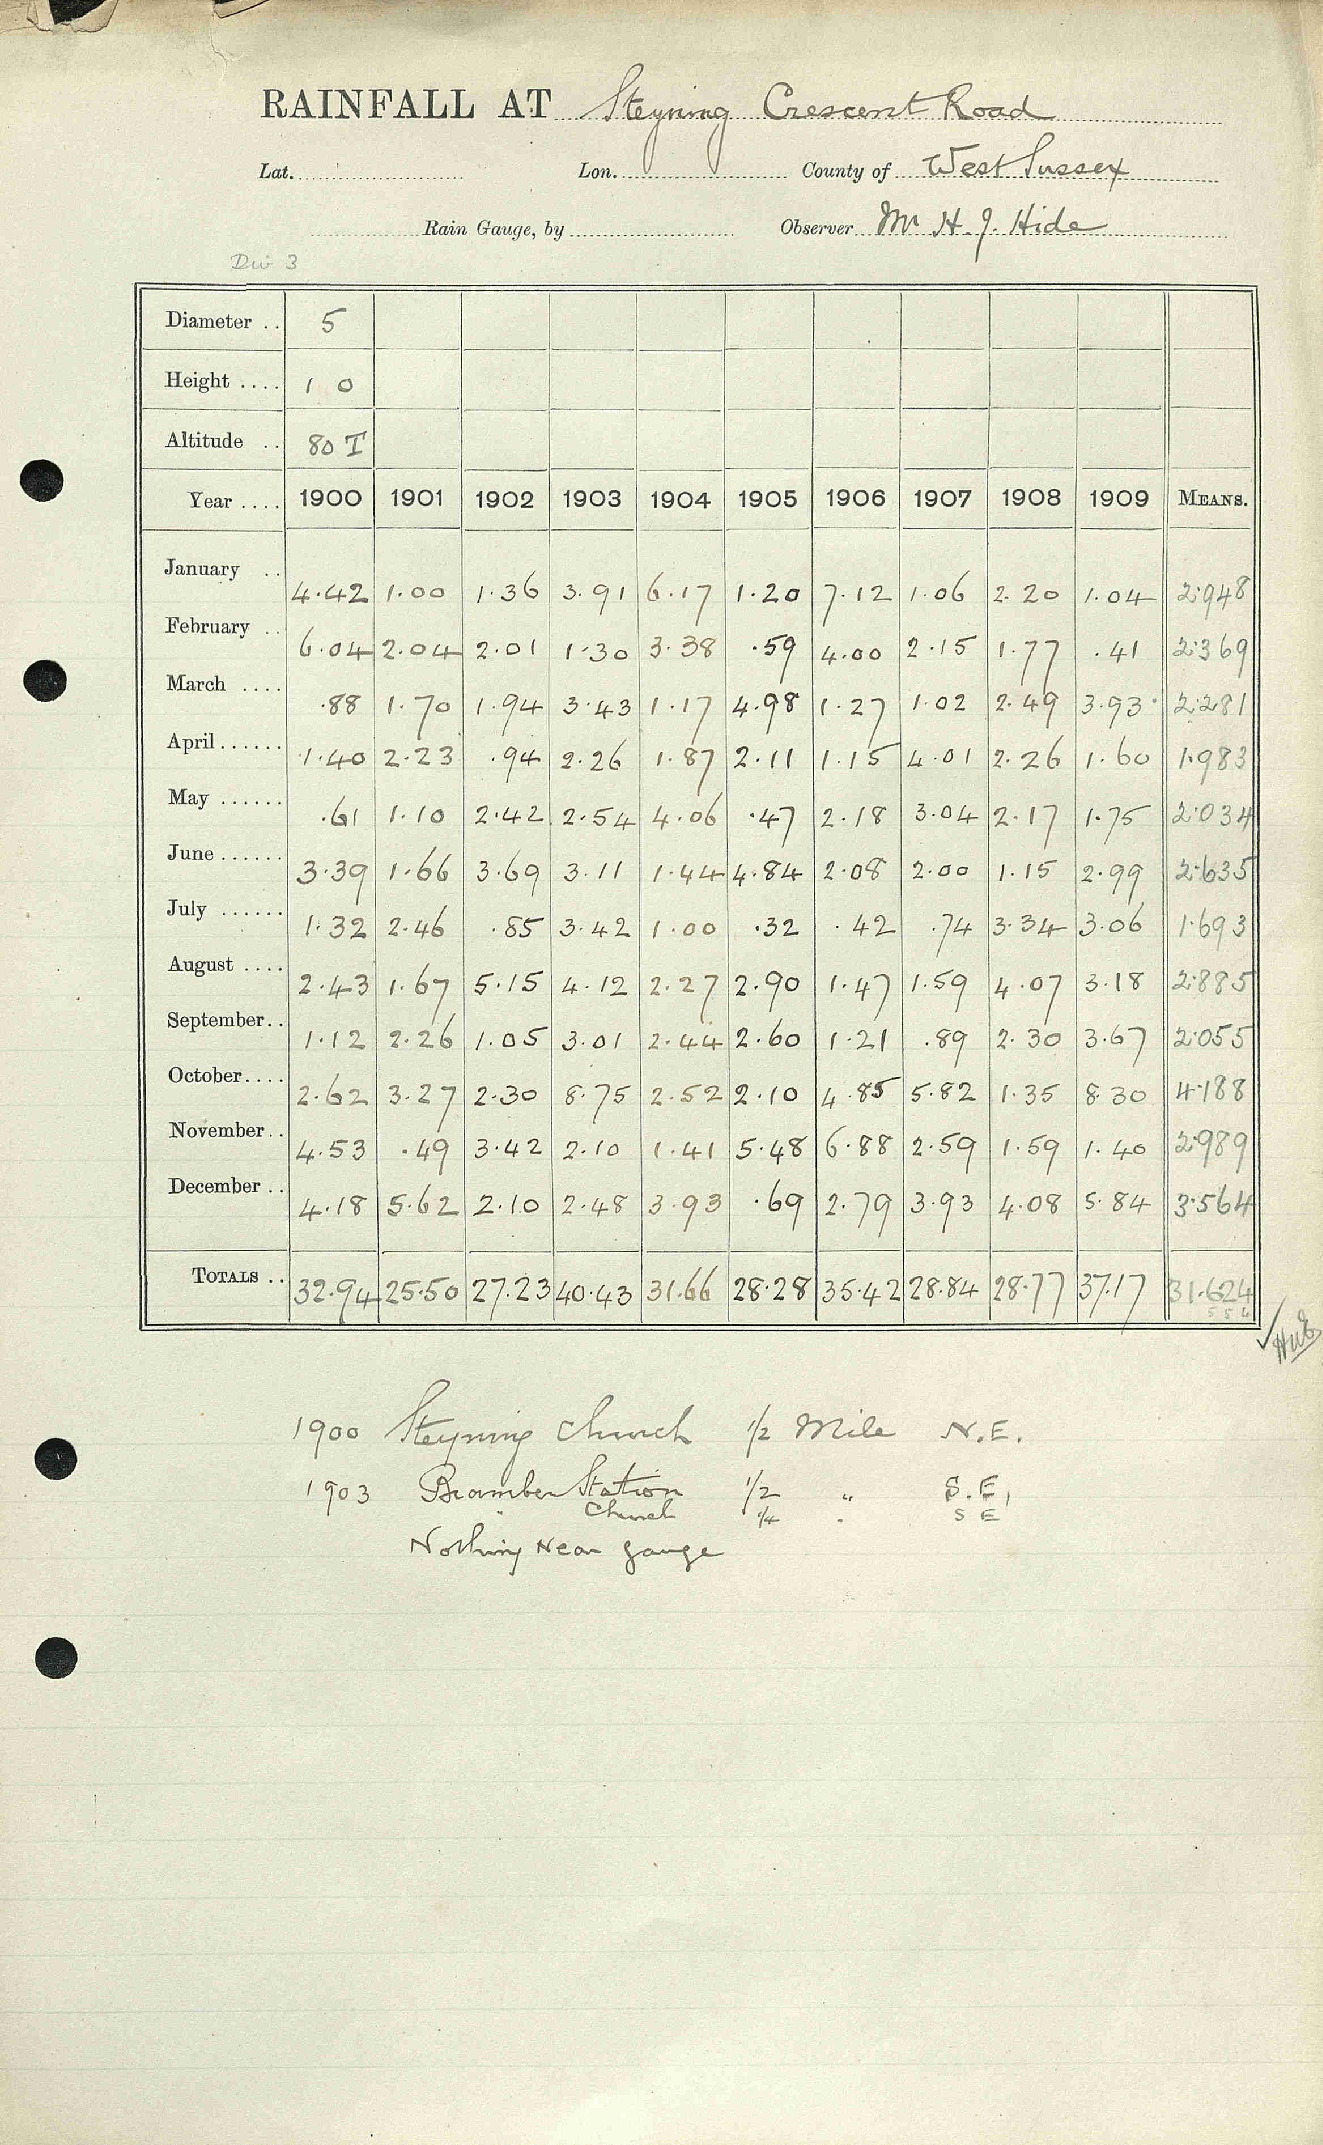 RAINFALL AT Steyning Crescent Road
Lat. Lon. County of West Sussex
Rain Gauge, by Observer Mr H. J. Hide
Div 3
Diameter .. 5
Height .... 1 0
Altitude .. 80 T
Year .... 1900 1901 1902 1903 1904 1905 1906 1907 1908 1909 MEANS.
January .. 4.42 1.00 1.36 3.91 6.17 1.20 7.12 1.06 2.20 1.04 2.948
February .. 6.04 2.04 2.01 1.30 3.38 .59 4.00 2.15 1.77 .41 2.369
March .... .88 1.70 1.94 3.43 1.17 4.98 1.27 1.02 2.49 3.93 2.281
April ...... 1.40 2.23 .94 2.26 1.87 2.11 1.15 4.01 2.26 1.60 1.983
May ...... .61 1.10 2.42 2.54 4.06 .47 2.18 3.04 2.17 1.75 2.034
June ...... 3.39 1.66 3.69 3.11 1.44 4.84 2.08 2.00 1.15 2.99 2.635
July ...... 1.32 2.46 .85 3.42 1.00 .32 .42 .74 3.34 3.06 1.693
August .... 2.43 1.67 5.15 4.12 2.27 2.90 1.47 1.59 4.07 3.18 2.885
September .. 1.12 2.26 1.05 3.01 2.44 2.60 1.21 .89 2.30 3.67 2.055
October .... 2.62 3.27 2.30 8.75 2.52 2.10 4.85 5.82 1.35 8.30 4.188
November .. 4.53 .49 3.42 2.10 1.41 5.48 6.88 2.59 1.59 1.40 2.989
December .. 4.18 5.62 2.10 2.48 3.93 .69 2.79 3.93 4.08 5.84 3.564
TOTALS .. 32.94 25.50 27.23 40.43 31.66 28.28 35.42 28.84 28.77 37.17 31.624
1900 Steyning Church 1/2 Mile N.E.
1903 Bramber Station 1/2 " S.E.
" Church 1/4 " S E
Nothing Near gauge